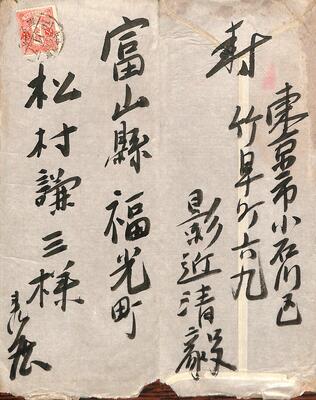 東京市小石川区
竹早町六九
封
影近清毅
富山縣福光町
松村謙三様